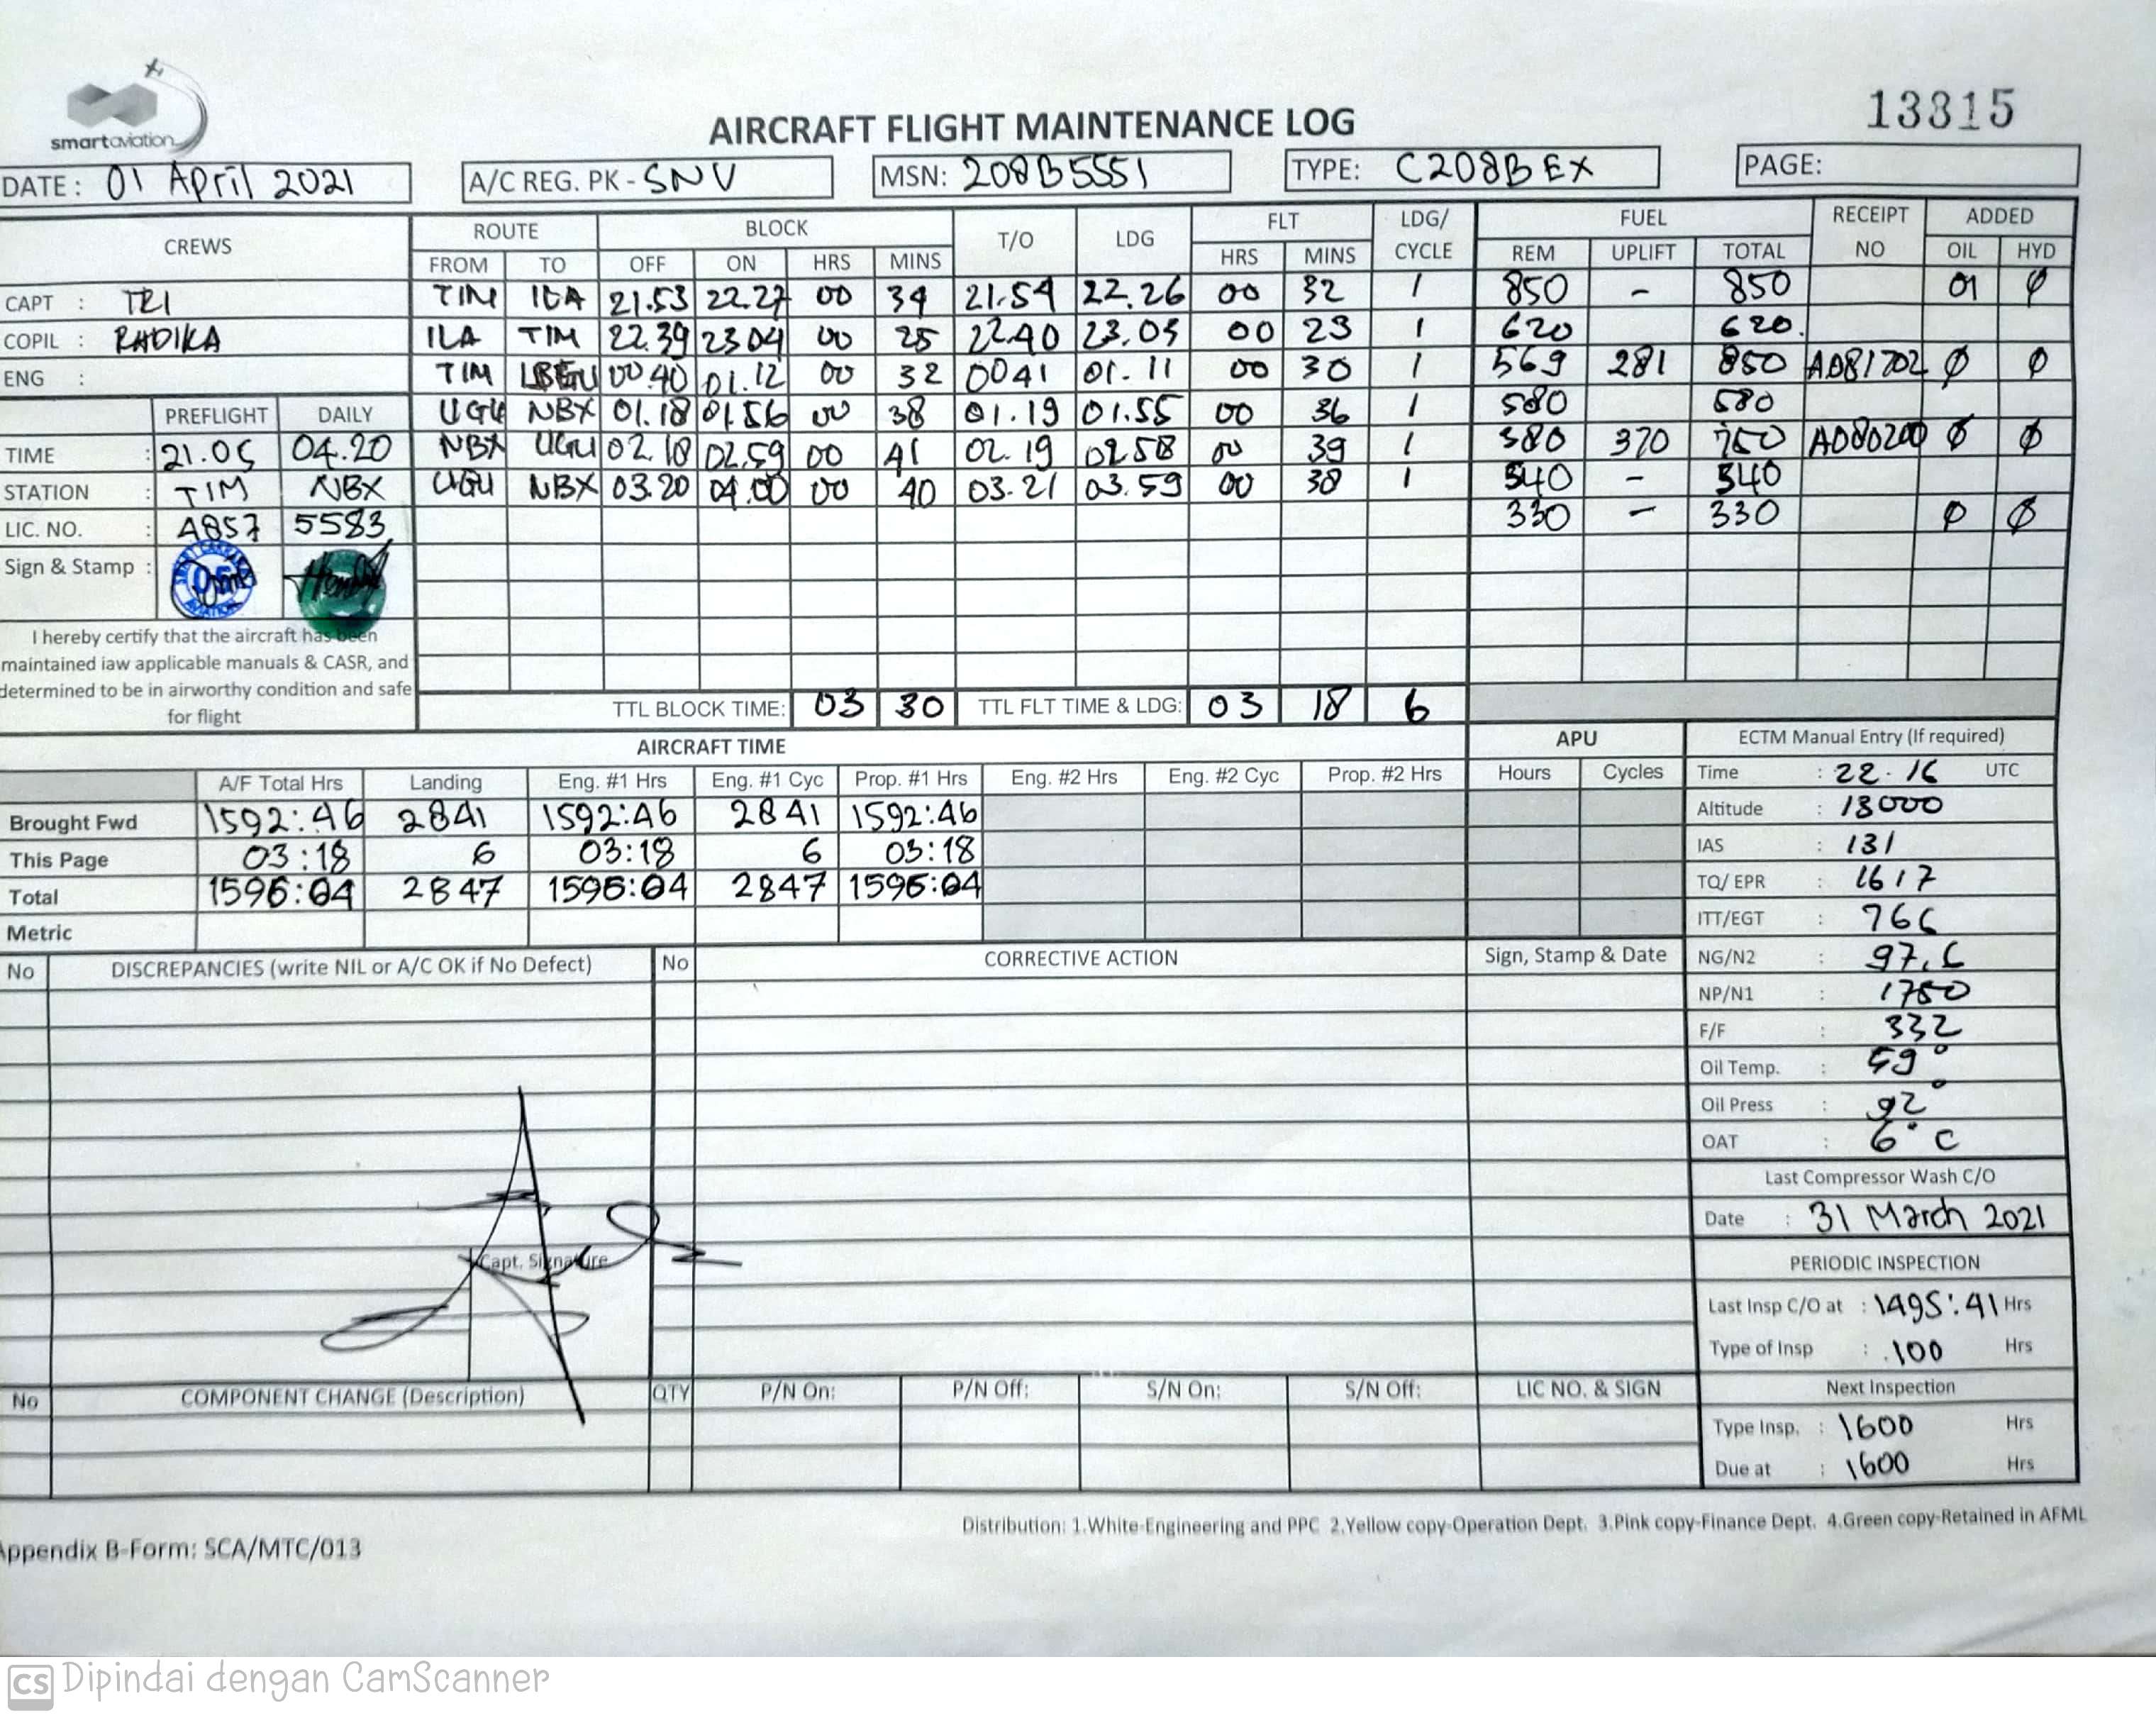 smartaviation
AIRCRAFT FLIGHT MAINTENANCE LOG
13315
DATE: 01 April 2021 A/C REG. PK - SNV MSN: 208B5551 TYPE: C208B EX PAGE:
CREWS ROUTE BLOCK T/O LDG FLT LDG/ CYCLE FUEL RECEIPT NO ADDED
FROM TO OFF ON HRS MINS HRS MINS REM UPLIFT TOTAL OIL HYD
CAPT : TRI TIM ILA 21.53 22.27 00 34 21.54 22.26 00 32 1 850 - 850 01 Ø
COPIL : RADIKA ILA TIM 22.39 23 04 00 25 22.40 23.03 00 23 1 620 620.
ENG : TIM UGU 00.40 01.12 00 32 0041 01.11 00 30 1 569 281 850 AD81702 Ø Ø
PREFLIGHT DAILY UGU NBX 01.18 01.56 00 38 01.19 01.55 00 36 1 580 580
TIME : 21.05 04.20 NBX UGU 02.18 02.59 00 41 02.19 02.58 00 39 1 380 370 750 AD80200 Ø Ø
STATION : TIM NBX UGU NBX 03.20 04.00 00 40 03.21 03.59 00 38 1 540 - 540
LIC. NO. : A857 5583 330 - 330 Ø Ø
Sign & Stamp :
I hereby certify that the aircraft has been
maintained iaw applicable manuals & CASR, and
determined to be in airworthy condition and safe
for flight
TTL BLOCK TIME: 03 30 TTL FLT TIME & LDG: 03 18 6
AIRCRAFT TIME APU
A/F Total Hrs Landing Eng. #1 Hrs Eng. #1 Cyc Prop. #1 Hrs Eng. #2 Hrs Eng. #2 Cyc Prop. #2 Hrs Hours Cycles
Brought Fwd 1592:46 2841 1592:46 2841 1592:46
This Page 03:18 6 03:18 6 03:18
Total 1596:04 2847 1596:04 2847 1596:04
Metric
ECTM Manual Entry (If required)
Time : 22.16 UTC
Altitude : 13000
IAS : 131
TQ/ EPR : 1617
ITT/EGT : 766
NG/N2 : 97.6
NP/N1 : 1750
F/F : 332
Oil Temp. : 59°
Oil Press : 92°
OAT : 6° C
Last Compressor Wash C/O
Date : 31 March 2021
PERIODIC INSPECTION
Last Insp C/O at : 1495:41 Hrs
Type of Insp : .100 Hrs
Next Inspection
Type Insp. : 1600 Hrs
Due at : 1600 Hrs
No DISCREPANCIES (write NIL or A/C OK if No Defect) No CORRECTIVE ACTION Sign, Stamp & Date
Capt. Signature
No COMPONENT CHANGE (Description) QTY P/N On: P/N Off: S/N On: S/N Off: LIC NO. & SIGN
Distribution: 1.White-Engineering and PPC 2.Yellow copy-Operation Dept. 3.Pink copy-Finance Dept. 4.Green copy-Retained in AFML
Appendix B-Form: SCA/MTC/013
CS Dipindai dengan CamScanner